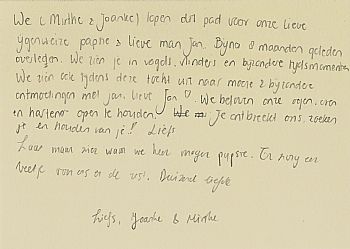 We (Mirthe & Joanke) lopen dit pad voor onze lieve
papsie & lieve man Jan. Bijna 8 maanden geleden
overleden. We zien je in vogels, vlinders en bijzondere
We zien ook tijdens deze tocht uit naar mooie & bijzondere
ontmoetingen met jou, lieve Jan ♡. We beloven onze ogen, oren
en harten open te houden. Je ontbreekt ons, zoeken
je en houden van je! Liefs
maar zien waar we heen mogen papsie. En zorg en
voor ons en de rest. Duizend liefde
Liefs, Joanke & Mirthe